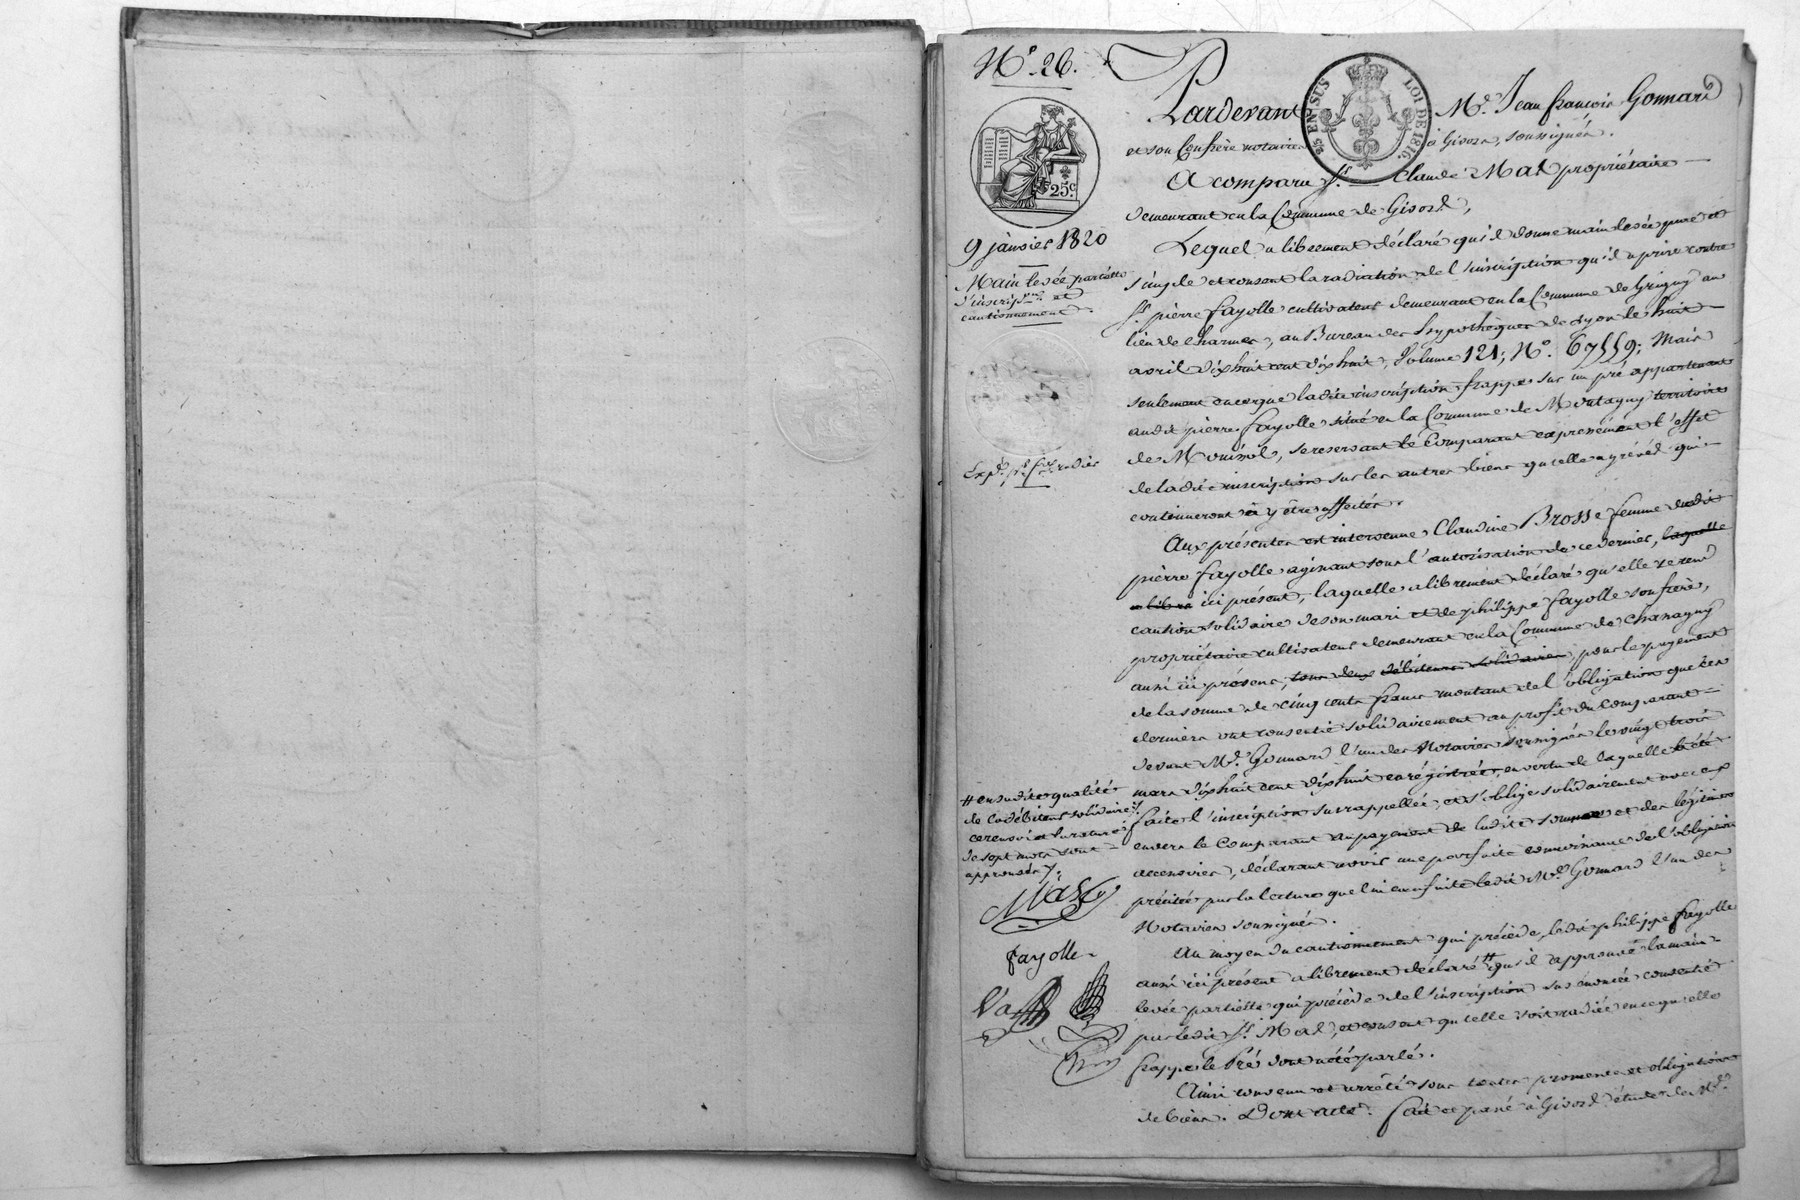 N.° 26.
25 EN SUS
LOI DE 1816.
25.c
9 janvier 1820
Main levée partielle
d'inscrip.on et
cautionnement.
Pardevant M.e Jean françois Gonnard
et son Confrère notaires à Givors, soussignés.
A comparu S.r Claude Mas propriétaire
demeurant en la Commune de Givors,
Lequel a librement déclaré qu'il donne main levée pure et
simple et consent la radiation de l'inscription qu'il a prise contre
S.r pierre fayolle cultivateur demeurant en la Commune de Grigny au
lieu de Charmes, au Bureau des hypothèques de Lyon le huit
avril dixhuit cent dixhuit, Volume 121, N.° 67559; Mais
seulement en ce que ladite inscription frappe sur un pré appartenant
audit pierre fayolle situé en la Commune de Montagny territoire
de , se reservant le Comparant expressement l'effet
de ladite inscription sur les autres biens qu'elle a grévés qui
continueront à y être affectés.
Aux présentes est intervenue Claudine Brosse femme dudit
pierre fayolle agissant sous l'autorisation de ce dernier, laquelle
a libre ici présent, laquelle a librement déclaré qu'elle se rend
caution solidaire de son mari et de philippe fayolle son frère,
propriétaire cultivateur demeurant en la Commune de Chassagny
aussi ici présent, tous deux débiteurs solidaires pour le payement
de la somme de cinq cents francs montant de l'obligation que ces
derniers ont consentie solidairement au profit du Comparant
devant M.e Gonnard l'un des Notaires soussignés le vingt trois
mars dixhuit cent dixhuit enrégistrée, en vertu de laquelle a été
faite l'inscription surrappellée, et s'oblige solidairement avec eux
envers le Comparant au payement de ladite somme et des légitimes
accessoires, déclarant avoir une parfaite connoissance de l'obligation
précitée par la lecture que lui en a faite ledit M.e Gonnard l'un des
Notaires soussignés.
Au moyen du cautionnement qui précède, ledit philippe fayolle
aussi ici présent a librement déclaré # qu'il approuve la main
levée partielle qui précède de l'inscription sus énoncée consentie
par ledit S.r Mas, et consent qu'elle soit radiée en ce qu'elle
frappe le Pré dont a été parlé.
Ainsi convenu et arrêté sous toutes promesses et obligations
de biens. Dont acte. fait et passé à Givors étude de M.e
# en sadite qualité
de Codébiteur solidaire
ce renvoi et la rature
de sept mots sont
approuvés
Mas
fayolle